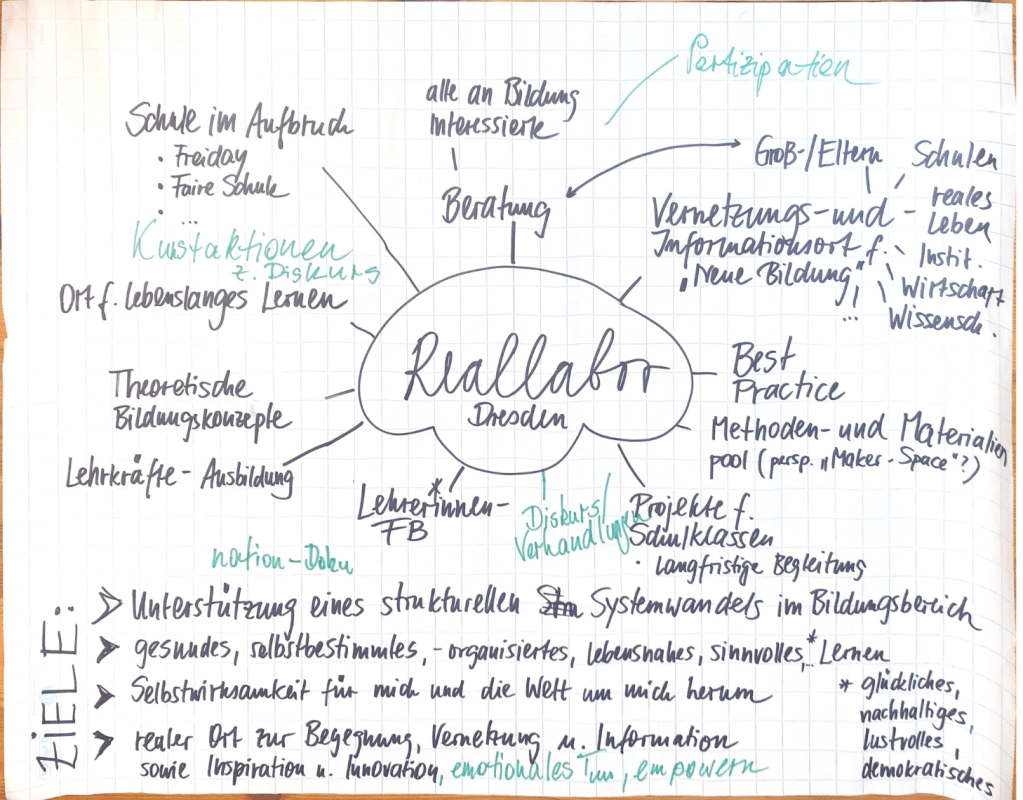 Partizipation
alle an Bildung
Interessierte
Schule im Aufbruch
• Freiday
• Faire Schule
• ...
Beratung
Groß-/Eltern
Schulen
reales
Leben
Instit.
Wirtschaft
Wissensch.
Vernetzungs- und
Informationsort f.
„Neue Bildung"
...
Kunstaktionen
z. Diskurs
Ort f. lebenslanges Lernen
Reallabor
Dresden
Theoretische
Bildungskonzepte
Best
Practice
Methoden- und Materialien
pool (persp. „Maker-Space"?)
Lehrkräfte-Ausbildung
Lehrer*innen-
FB
Diskurs/
Verhandlungen
Projekte f.
Schulklassen
• langfristige Begleitung
nation-Doku
ZIELE:
➤ Unterstützung eines strukturellen Systemwandels im Bildungsbereich
➤ gesundes, selbstbestimmtes, -organisiertes, lebensnahes, sinnvolles,...* Lernen
➤ Selbstwirksamkeit für mich und die Welt um mich herum
➤ realer Ort zur Begegnung, Vernetzung u. Information
sowie Inspiration u. Innovation, emotionales Tun, empowern
* glückliches,
nachhaltiges,
lustvolles,
demokratisches